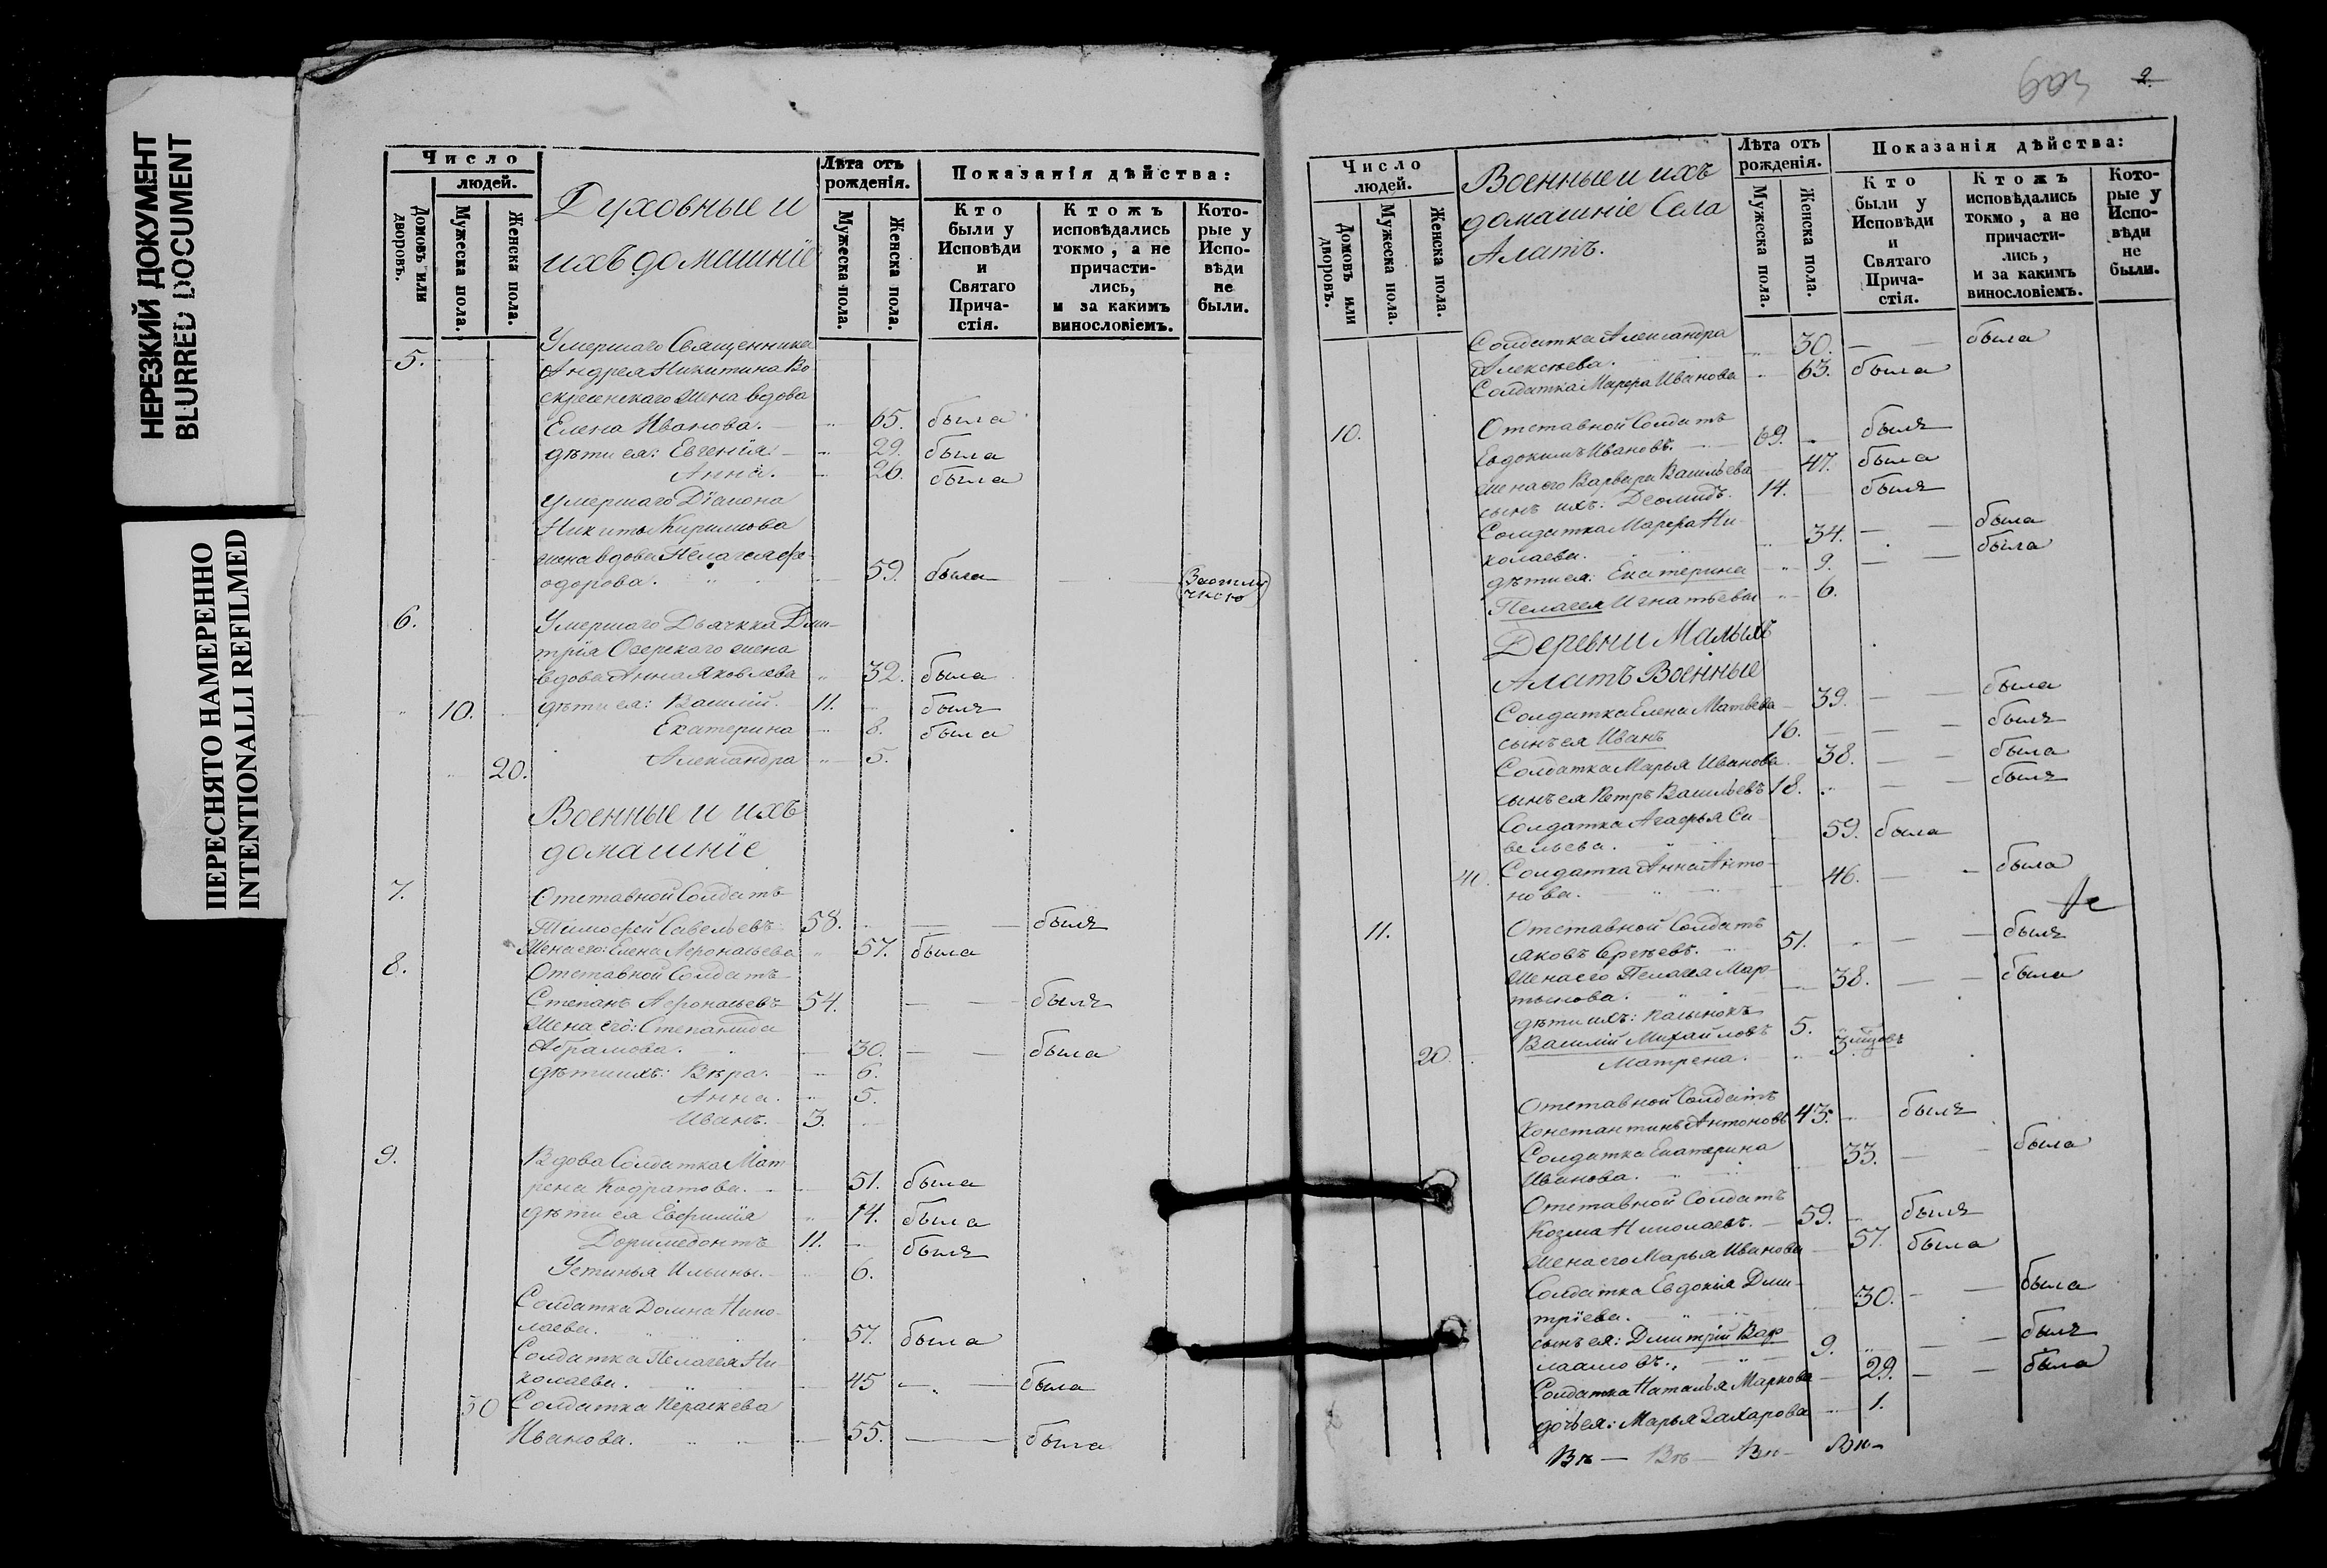 НЕРЕЗКИЙ ДОКУМЕНТ
BLURRED DOCUMENT
ПЕРЕСНЯТО НАМЕРЕННО
INTENTIONALLI REFILMED
Число
людей.
Домовъ или дворовъ.
Мужеска пола.
Женска пола.
Духовные и
ихъ домашніе
Лѣта отъ
рожденія.
Мужеска пола.
Женска пола.
Показанія дѣйства:
Кто были у Исповѣди и Святаго Причастія.
Ктожъ исповѣдались токмо, а не причастились, и за какимъ винословіемъ.
Которые у Исповѣди не были.
5. Умершаго Священника
Андрея Никитина Во
скресенскаго жена вдова
Елена Иванова. 65. была
дѣти ея: Евгенія 29. была
Анна. 26. была
Умершаго Діакона
Никиты Кирилова
жена вдова Пелагея Фе-
одорова. 59. была
6. Умершаго Дьячка Дми-
трія Озерскаго жена
вдова Анна Яковлева 32. была
10. дѣти ея: Василій. 11. былъ
Екатерина 8. была
20. Александра 5.
Военные и ихъ
домашніе
7. Отставной Солдатъ
Тимофей Савельевъ 58. былъ
Жена его: Елена Афонасьева 57. была
8. Отставной Солдатъ
Степанъ Афонасьевъ 54. былъ
Жена его: Степанида
Абрамова. 30. была
дѣти ихъ: Вѣра. 6.
Анна. 5.
Иванъ. 3.
9. Вдова Солдатка Мат
рена Кодратова. 51. была
дѣти ея Евфимія 14. была
Доримедонтъ 11. былъ
Устинья Ильины. 6.
Солдатка Домна Нико-
лаева. 57. была
Солдатка Пелагея Ни-
колаева. 45 была
30 Солдатка Параскева
Иванова. 55. была
2.
Число
людей.
Домовъ или дворовъ.
Мужеска пола.
Женска пола.
Военные и ихъ
домашніе Села
Алатъ.
Лѣта отъ
рожденія.
Мужеска пола.
Женска пола.
Показанія дѣйства:
Кто были у Исповѣди и Святаго Причастія.
Ктожъ исповѣдались токмо, а не причастились, и за какимъ винословіемъ.
Которые у Исповѣди не были.
Солдатка Александра
Алексѣева. 30. была
Солдатка Марфа Иванова 63. была
10. Отставной Солдатъ
Евдокимъ Ивановъ. 69. былъ
Жена его Варвара Васильева 47. была
сынъ ихъ: Деомидъ. 14. былъ
Солдатка Марфа Ни-
колаева. 34. была
дѣти ея: Екатерина 9. была
Пелагея Игнатьевы 6.
Деревни Малыхъ
Алатъ Военные
Солдатка Елена Матвѣева 39. была
сынъ ея Иванъ 16. былъ
Солдатка Марья Иванова 38. была
сынъ ея Петръ Васильевъ 18. былъ
Солдатка Агафья Са-
вельева. 59. была
40. Солдатка Анна Анто-
нова. 46. была
11. Отставной Солдатъ
Яковъ Сергѣевъ. 51. былъ
Жена его Пелагея Мар-
тынова. 38. была
дѣти ихъ:
Василій Михайловъ 5.
20. Матрена. 3
Отставной Солдатъ
Константинъ Антоновъ 43. былъ
Солдатка Екатерина
Иванова. 33. была
Отставной Солдатъ
Козма Николаевъ. 59. былъ
Жена его Марья Иванова 57. была
Солдатка Евдокія Дми-
тріева. 30. была
сынъ ея: Дмитрій Вар-
лаамовъ. 9. былъ
Солдатка Наталья Маркова 29. была
дочь ея: Марья Захарова 1.